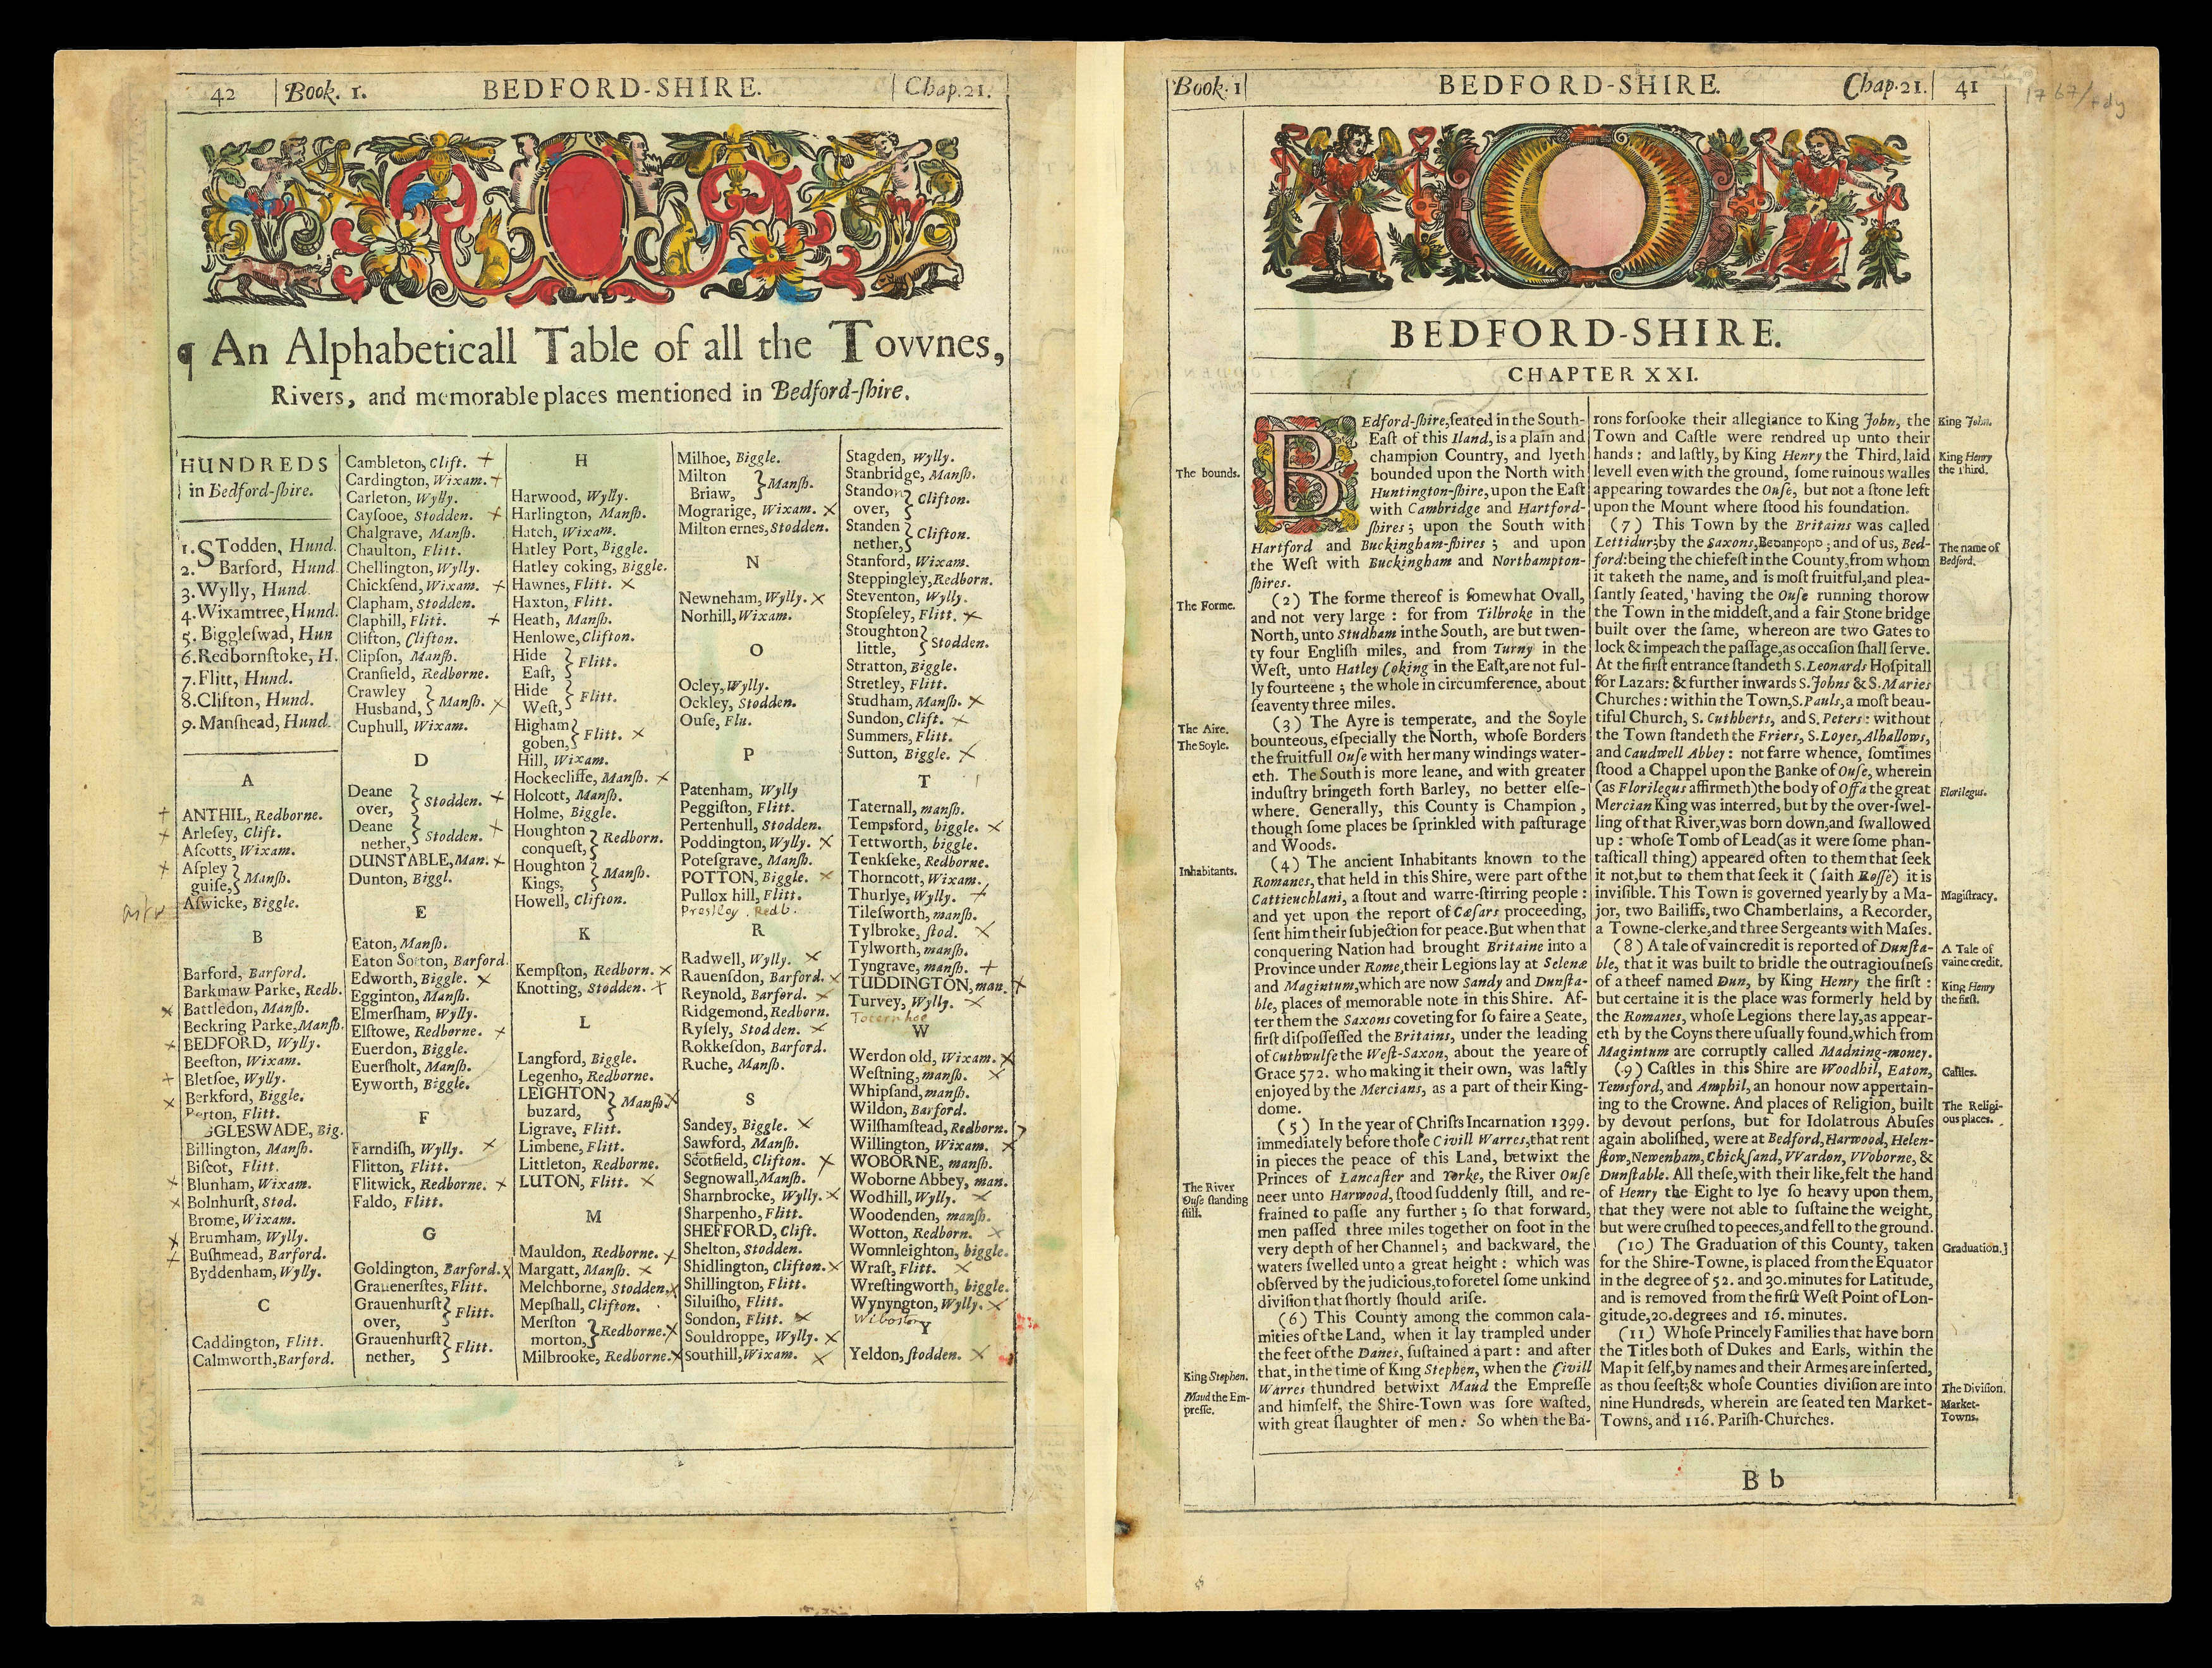 42 Book. 1. BEDFORD-SHIRE. Chap.21.
¶ An Alphabeticall Table of all the Tovvnes,
Rivers, and memorable places mentioned in Bedford-ſhire.
HUNDREDS
in Bedford-ſhire.
1. STodden, Hund.
2. Barford, Hund.
3. Wylly, Hund.
4. Wixamtree, Hund.
5. Biggleſwad, Hun
6. Redbornſtoke, H.
7. Flitt, Hund.
8. Clifton, Hund.
9. Manſhead, Hund.
A
ANTHIL, Redborne.
Arleſey, Clift.
Aſcotts, Wixam.
Aſpley
guiſe, } Manſh.
Aſwicke, Biggle.
B
Barford, Barford.
Barkmaw Parke, Redb.
Battledon, Manſh.
Beckring Parke, Manſh.
BEDFORD, Wylly.
Beeſton, Wixam.
Bletſoe, Wylly.
Berkford, Biggle.
rton, Flitt.
GGLESWADE, Big.
Billington, Manſh.
Biſcot, Flitt.
Blunham, Wixam.
Bolnhurſt, Stod.
Brome, Wixam.
Brumham, Wylly.
Buſhmead, Barford.
Byddenham, Wylly.
C
Caddington, Flitt.
Calmworth, Barford.
Cambleton, Clift.
Cardington, Wixam.
Carleton, Wylly.
Cayſooe, Stodden.
Chalgrave, Manſh.
Chaulton, Flitt.
Chellington, Wylly.
Chickſend, Wixam.
Clapham, Stodden.
Claphill, Flitt.
Clifton, Clifton.
Clipſon, Manſh.
Cranfield, Redborne.
Crawley
Husband, } Manſh.
Cuphull, Wixam.
D
Deane
over, } Stodden.
Deane
nether, } Stodden.
DUNSTABLE, Man.
Dunton, Biggl.
E
Eaton, Manſh.
Eaton Socton, Barford.
Edworth, Biggle.
Egginton, Manſh.
Elmerſham, Wylly.
Elſtowe, Redborne.
Euerdon, Biggle.
Euerſholt, Manſh.
Eyworth, Biggle.
F
Farndiſh, Wylly.
Flitton, Flitt.
Flitwick, Redborne.
Faldo, Flitt.
G
Goldington, Barford.
Grauenerſtes, Flitt.
Grauenhurſt
over, } Flitt.
Grauenhurſt
nether, } Flitt.
H
Harwood, Wylly.
Harlington, Manſh.
Hatch, Wixam.
Hatley Port, Biggle.
Hatley coking, Biggle.
Hawnes, Flitt.
Haxton, Flitt.
Heath, Manſh.
Henlowe, Clifton.
Hide
Eaſt, } Flitt.
Hide
Weſt, } Flitt.
Higham
goben, } Flitt.
Hill, Wixam.
Hockecliffe, Manſh.
Holcott, Manſh.
Holme, Biggle.
Houghton
conqueſt, } Redborn.
Houghton
Kings, } Manſh.
Howell, Clifton.
K
Kempſton, Redborn.
Knotting, Stodden.
L
Langford, Biggle.
Legenho, Redborne.
LEIGHTON
buzard, } Manſh.
Ligrave, Flitt.
Limbene, Flitt.
Littleton, Redborne.
LUTON, Flitt.
M
Mauldon, Redborne.
Margatt, Manſh.
Melchborne, Stodden.
Mepſhall, Clifton.
Merſton
morton, } Redborne.
Milbrooke, Redborne.
Milhoe, Biggle.
Milton
Briaw, } Manſh.
Mograrige, Wixam.
Milton ernes, Stodden.
N
Newneham, Wylly.
Norhill, Wixam.
O
Ocley, Wylly.
Ockley, Stodden.
Ouſe, Flu.
P
Patenham, Wylly
Peggiſton, Flitt.
Pertenhull, Stodden.
Poddington, Wylly.
Poteſgrave, Manſh.
POTTON, Biggle.
Pullox hill, Flitt.
Prestley. Redb.
R
Radwell, Wylly.
Rauenſdon, Barford.
Reynold, Barford.
Ridgemond, Redborn.
Ryſely, Stodden.
Rokkeſdon, Barford.
Ruche, Manſh.
S
Sandey, Biggle.
Sawford, Manſh.
Scotfield, Clifton.
Segnowall, Manſh.
Sharnbrocke, Wylly.
Sharpenho, Flitt.
SHEFFORD, Clift.
Shelton, Stodden.
Shidlington, Clifton.
Shillington, Flitt.
Siluiſho, Flitt.
Sondon, Flitt.
Souldroppe, Wylly.
Southill, Wixam.
Stagden, Wylly.
Stanbridge, Manſh.
Standon
over, } Clifton.
Standen
nether, } Clifton.
Stanford, Wixam.
Steppingley, Redborn.
Steventon, Wylly.
Stopſeley, Flitt.
Stoughton
little, } Stodden.
Stratton, Biggle.
Stretley, Flitt.
Studham, Manſh.
Sundon, Clift.
Summers, Flitt.
Sutton, Biggle.
T
Taternall, manſh.
Tempsford, biggle.
Tettworth, biggle.
Tenkſeke, Redborne.
Thorncott, Wixam.
Thurlye, Wylly.
Tileſworth, manſh.
Tylbroke, ſtod.
Tylworth, manſh.
Tyngrave, manſh.
TUDDINGTON, man.
Turvey, Wylly.
Toternhoe
W
Werdon old, Wixam.
Weſtning, manſh.
Whipſand, manſh.
Wildon, Barford.
Wilſhamſtead, Redborn.
Willington, Wixam.
WOBORNE, manſh.
Woborne Abbey, man.
Wodhill, Wylly.
Woodenden, manſh.
Wotton, Redborn.
Womnleighton, biggle.
Wraſt, Flitt.
Wreſtingworth, biggle.
Wynyngton, Wylly.
Wiboston
Y
Yeldon, ſtodden.
Book. 1 BEDFORD-SHIRE. Chap.21. 41
BEDFORD-SHIRE.
CHAPTER XXI.
The bounds.
The Forme.
The Aire.
The Soyle.
Inhabitants.
The River
Ouſe ſtanding
ſtill.
King Stephen.
Maud the Em-
preſſe.
BEdford-ſhire, ſeated in the South-
Eaſt of this Iland, is a plain and
champion Country, and lyeth
bounded upon the North with
Huntington-ſhire, upon the Eaſt
with Cambridge and Hartford-
ſhires; upon the South with
Hartford and Buckingham-ſhires; and upon
the Weſt with Buckingham and Northampton-
ſhires.
(2) The forme thereof is ſomewhat Ovall,
and not very large: for from Tilbroke in the
North, unto Studham in the South, are but twen-
ty four Engliſh miles, and from Turny in the
Weſt, unto Hatley Coking in the Eaſt, are not ful-
ly fourteene; the whole in circumference, about
ſeaventy three miles.
(3) The Ayre is temperate, and the Soyle
bounteous, eſpecially the North, whoſe Borders
the fruitfull Ouſe with her many windings water-
eth. The South is more leane, and with greater
induſtry bringeth forth Barley, no better elſe-
where. Generally, this County is Champion,
though ſome places be ſprinkled with paſturage
and Woods.
(4) The ancient Inhabitants known to the
Romanes, that held in this Shire, were part of the
Cattieuchlani, a ſtout and warre-ſtirring people:
and yet upon the report of Cæſars proceeding,
ſent him their ſubjection for peace. But when that
conquering Nation had brought Britaine into a
Province under Rome, their Legions lay at Selenæ
and Magintum, which are now Sandy and Dunſta-
ble, places of memorable note in this Shire. Af-
ter them the Saxons coveting for ſo faire a Seate,
firſt diſpoſſeſſed the Britains, under the leading
of Cuthwulfe the Weſt-Saxon, about the yeare of
Grace 572. who making it their own, was laſtly
enjoyed by the Mercians, as a part of their King-
dome.
(5) In the year of Chriſts Incarnation 1399.
immediately before thoſe Civill Warres, that rent
in pieces the peace of this Land, betwixt the
Princes of Lancaſter and Yorke, the River Ouſe
neer unto Harwood, ſtood ſuddenly ſtill, and re-
frained to paſſe any further; ſo that forward,
men paſſed three miles together on foot in the
very depth of her Channel; and backward, the
waters ſwelled unto a great height: which was
obſerved by the judicious, to foretel ſome unkind
diviſion that ſhortly ſhould ariſe.
(6) This County among the common cala-
mities of the Land, when it lay trampled under
the feet of the Danes, ſuſtained a part: and after
that, in the time of King Stephen, when the Civill
Warres thundred betwixt Maud the Empreſſe
and himſelf, the Shire-Town was ſore waſted,
with great ſlaughter of men: So when the Ba-
rons forſooke their allegiance to King John, the
Town and Caſtle were rendred up unto their
hands: and laſtly, by King Henry the Third, laid
levell even with the ground, ſome ruinous walles
appearing towardes the Ouſe, but not a ſtone left
upon the Mount where ſtood his foundation.
(7) This Town by the Britains was called
Lettidur; by the Saxons, Beꝺanꝼoꞃꝺ; and of us, Bed-
ford: being the chiefeſt in the County, from whom
it taketh the name, and is moſt fruitful, and plea-
ſantly ſeated, having the Ouſe running thorow
the Town in the middeſt, and a fair Stone bridge
built over the ſame, whereon are two Gates to
lock & impeach the paſſage, as occaſion ſhall ſerve.
At the firſt entrance ſtandeth S. Leonards Hoſpitall
for Lazars: & further inwards S. Johns & S. Maries
Churches: within the Town, S. Pauls, a moſt beau-
tiful Church, S. Cuthberts, and S. Peters: without
the Town ſtandeth the Friers, S. Loyes, Alhallows,
and Caudwell Abbey: not farre whence, ſomtimes
ſtood a Chappel upon the Banke of Ouſe, wherein
(as Florilegus affirmeth) the body of Offa the great
Mercian King was interred, but by the over-ſwel-
ling of that River, was born down, and ſwallowed
up: whoſe Tomb of Lead (as it were ſome phan-
taſticall thing) appeared often to them that ſeek
it not, but to them that ſeek it (ſaith Roſſe) it is
inviſible. This Town is governed yearly by a Ma-
jor, two Bailiffs, two Chamberlains, a Recorder,
a Towne-clerke, and three Sergeants with Maſes.
(8) A tale of vain credit is reported of Dunſta-
ble, that it was built to bridle the outragiouſneſs
of a theef named Dun, by King Henry the firſt:
but certaine it is the place was formerly held by
the Romanes, whoſe Legions there lay, as appear-
eth by the Coyns there uſually found, which from
Magintum are corruptly called Madning-money.
(9) Caſtles in this Shire are Woodhil, Eaton,
Temsford, and Amphil, an honour now appertain-
ing to the Crowne. And places of Religion, built
by devout perſons, but for Idolatrous Abuſes
again aboliſhed, were at Bedford, Harwood, Helen-
ſtow, Newenham, Chickſand, VVardon, VVoborne, &
Dunſtable. All theſe, with their like, felt the hand
of Henry the Eight to lye ſo heavy upon them,
that they were not able to ſuſtaine the weight,
but were cruſhed to peeces, and fell to the ground.
(10) The Graduation of this County, taken
for the Shire-Towne, is placed from the Equator
in the degree of 52. and 30. minutes for Latitude,
and is removed from the firſt Weſt Point of Lon-
gitude, 20. degrees and 16. minutes.
(11) Whoſe Princely Families that have born
the Titles both of Dukes and Earls, within the
Map it ſelf, by names and their Armes are inſerted,
as thou ſeeſt; & whoſe Counties diviſion are into
nine Hundreds, wherein are ſeated ten Market-
Towns, and 116. Pariſh-Churches.
King John.
King Henry
the third.
The name of
Bedford.
Florilegus.
Magiſtracy.
A Tale of
vaine credit.
King Henry
the firſt.
Caſtles.
The Religi-
ous places.
Graduation.]
The Diviſion.
Market-
Towns.
B b